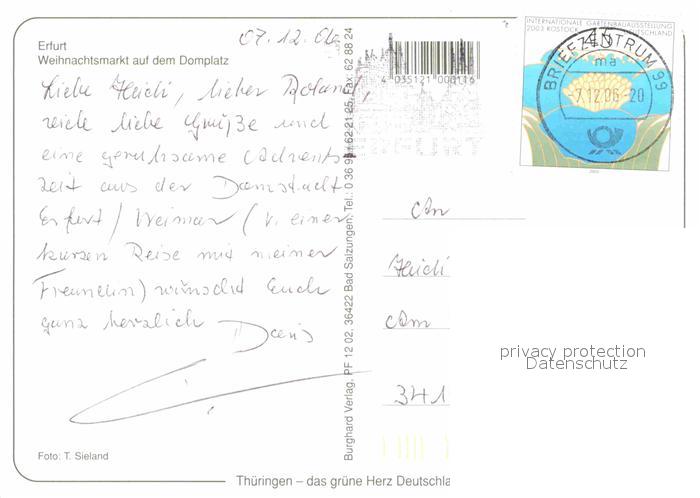 07.12.06
Erfurt
Weihnachtsmarkt auf dem Domplatz
Liebe Heidi, lieber Roland,
viele liebe Grüße und
eine geruhsame Advents-
zeit aus der Domstadt
Erfurt / Weimar (v. einer
kurzen Reise mit meiner
Freundin) wünscht Euch
ganz herzlich Doris
Foto: T. Sieland
Burghard Verlag, PF 12 02, 36422 Bad Salzungen, Tel.: 0 36 95/62 21 25, Fax: 62 88 24
4 035121 008116
ERFURT
INTERNATIONALE GARTENBAUAUSSTELLUNG
2003 ROSTOCK DEUTSCHLAND
45
BRIEFZENTRUM 99
ma
-7.12.06-20
2003
An
Heidi
Am
341
privacy protection
Datenschutz
Thüringen – das grüne Herz Deutschla